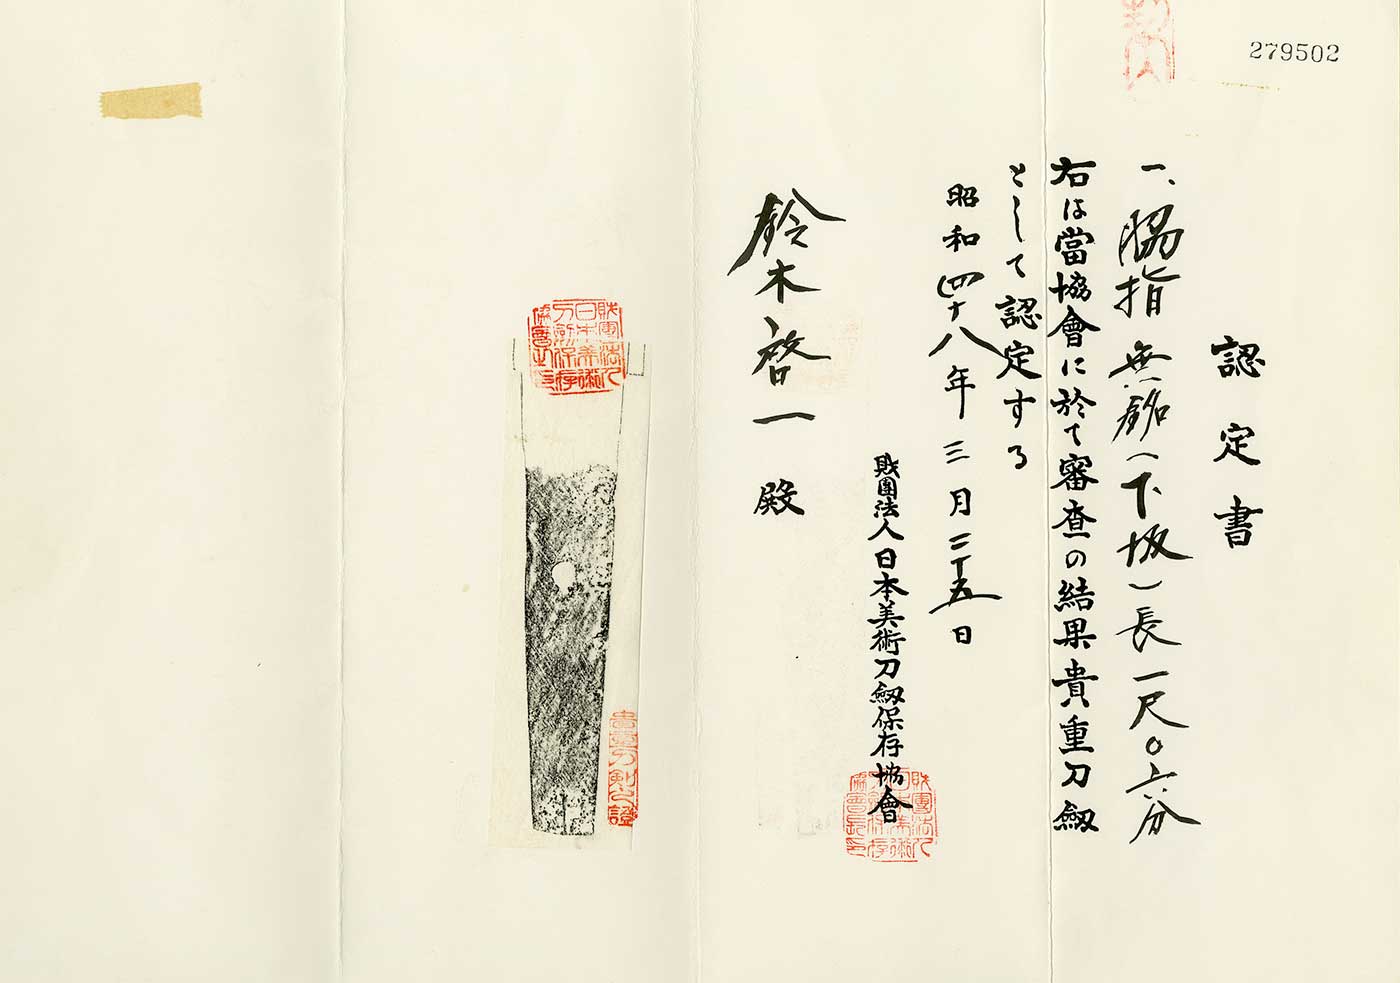 279502
認定書
一、脇指 無銘(下坂)長一尺〇六分
右は當協會に於て審査の結果貴重刀劔
として認定する
昭和四十八年三月二十五日
財團法人日本美術刀劔保存協會
鈴木啓一殿
財團法人日本美術刀劔保存協會長之印
財團法人日本美術刀劔保存協會之印
貴重刀剣之證